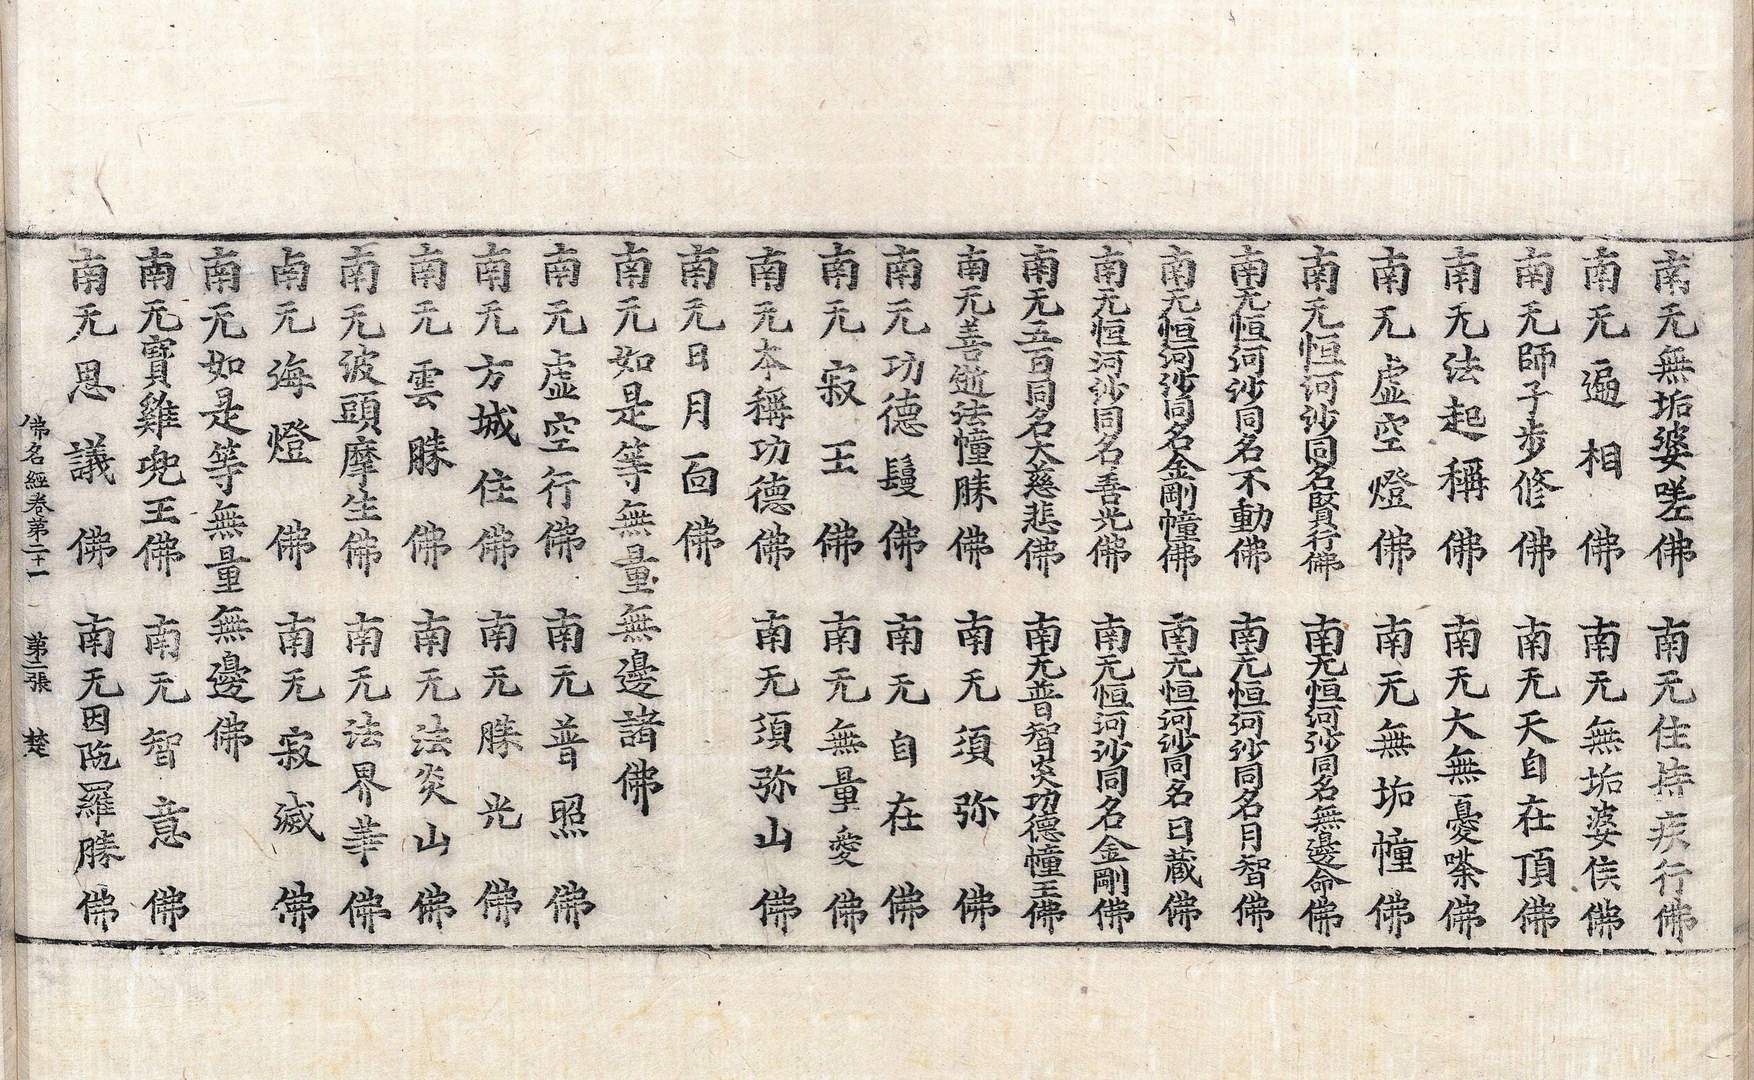 南无無垢婆嗟佛　南无住持疾行佛
南无遍相佛　南无無垢婆侯佛
南无師子步修佛　南无天自在頂佛
南无法起稱佛　南无大無憂嗏佛
南无虛空燈佛　南无無垢幢佛
南无恒河沙同名賢行佛　南无恒河沙同名無邊命佛
南无恒河沙同名不動佛　南无恒河沙同名月智佛
南无恒河沙同名金剛幢佛　南无恒河沙同名日藏佛
南无恒河沙同名善光佛　南无恒河沙同名金剛佛
南无五百同名大慈悲佛　南无普智炎功德幢王佛
南无善逝法幢勝佛　南无須弥佛
南无功德鬘佛　南无自在佛
南无寂王佛　南无無量愛佛
南无本稱功德佛　南无須弥山佛
南无日月面佛
南无如是等無量無邊諸佛
南无虛空行佛　南无普照佛
南无方城住佛　南无勝光佛
南无雲勝佛　南无法炎山佛
南无波頭摩生佛　南无法界華佛
南无海燈佛　南无寂滅佛
南无如是等無量無邊佛
南无寶雞兜王佛　南无智意佛
南无思議佛　南无因陁羅勝佛
佛名經卷第二十一　第二張　楚